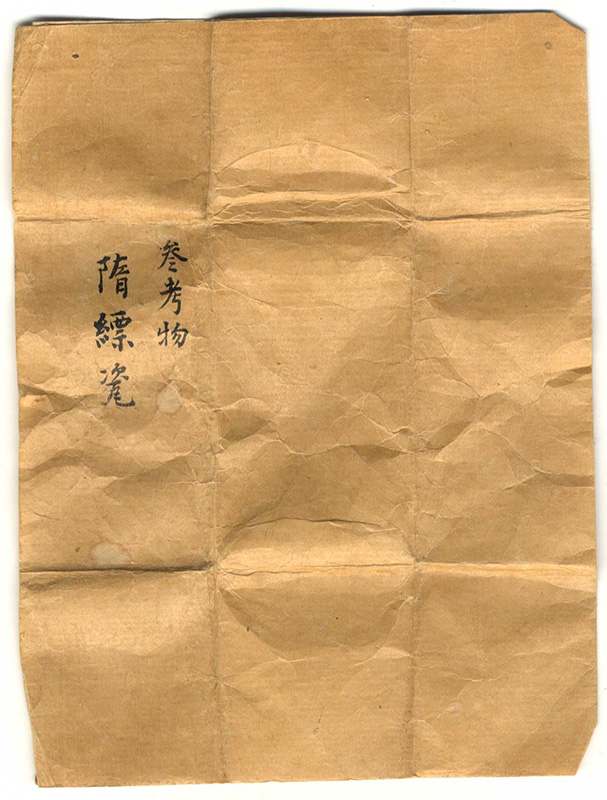 叅考物
隋縹瓷